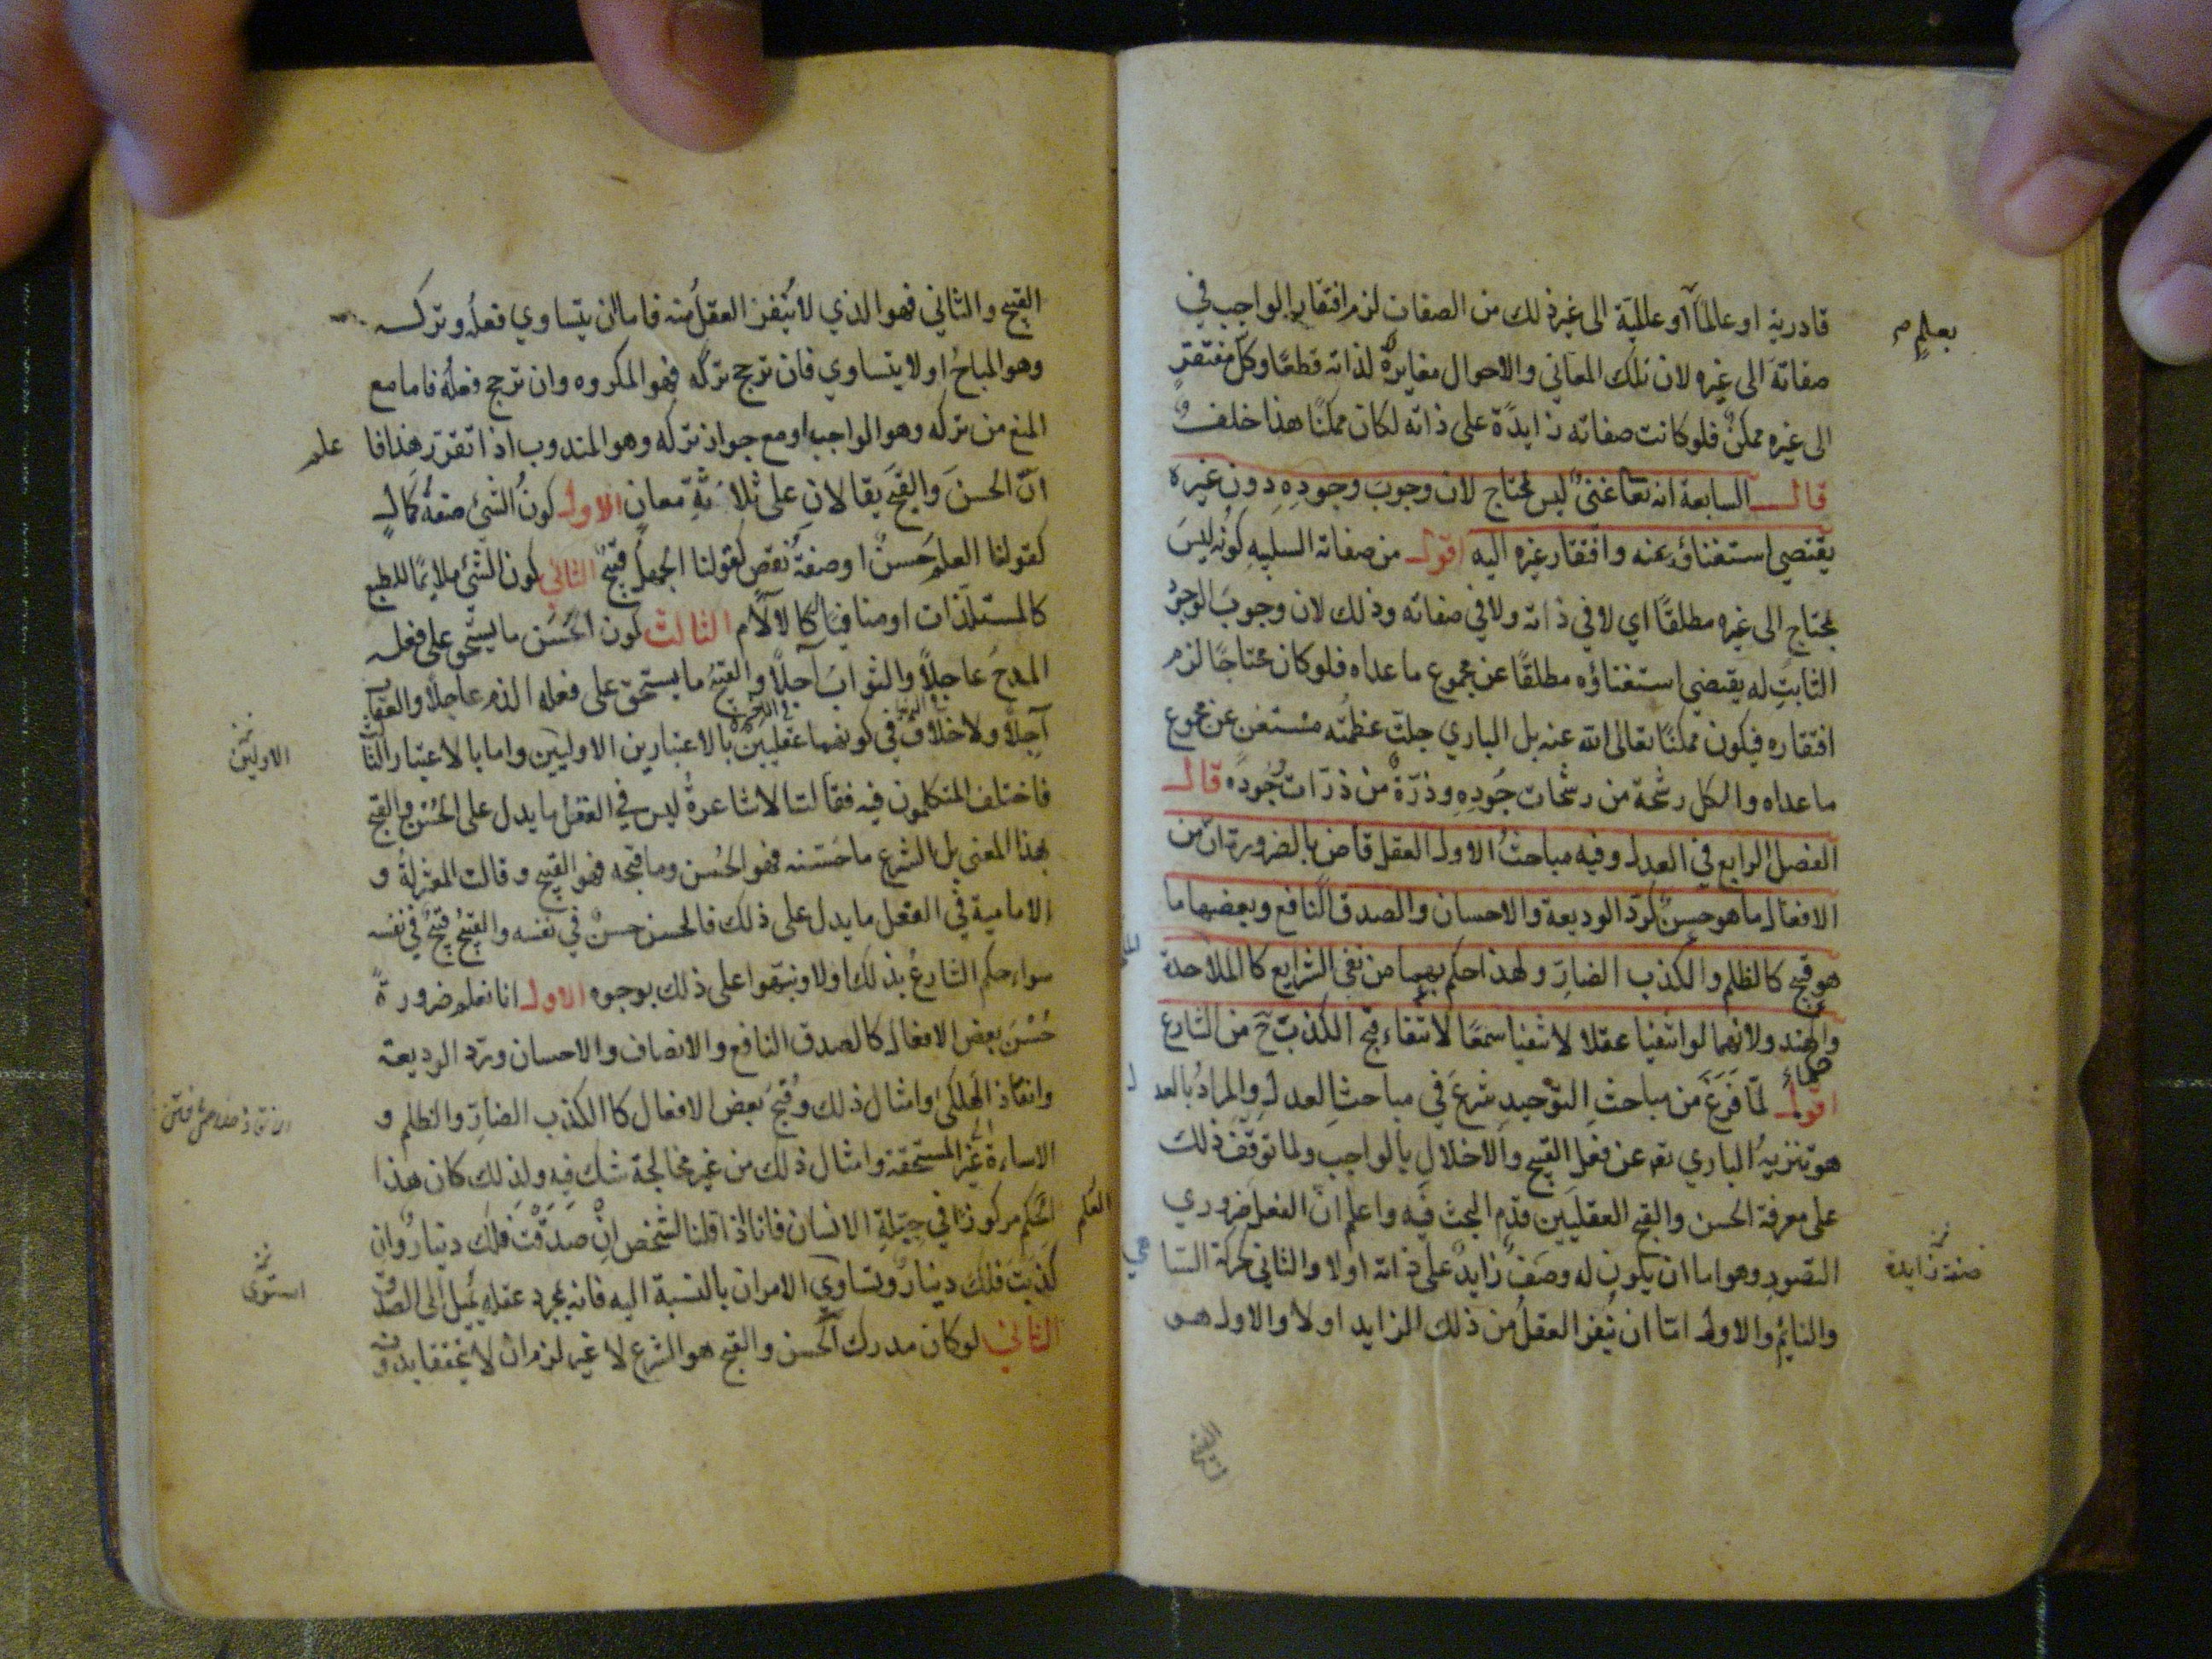 قادرية او عالما او عالمية الى غير ذلك من الصفات لزم افتقار الواجب في
بعلم
صفاته الى غيره لان تلك المعاني والاحوال مغايرة لذاته قطعا وكل مفتقر
الى غيره ممكن فلو كانت صفاته زايدة على ذاته لكان ممكنا هذا خلف
قال السابعة انه تعا غني ليس بمحتاج لان وجوب وجوده دون غيره
يقتضي استغناؤه عنه وافتقار غيره اليه اقول من صفاته السلبيه كونه ليس
بمحتاج الى غيره مطلقا اي لا في ذاته ولا في صفاته وذلك لان وجوب الوجود
الثابت له يقتضي استغناؤه مطلقا عن مجموع ما عداه فلو كان محتاجا لزم
افتقاره فيكون ممكنا تعالى الله عنه بل الباري جلت عظمته مستغن عن مجموع
ما عداه والكل رشحة من رشحات جوده وذرة من ذرات جوده قال
الفصل الرابع في العدل وفيه مباحث الاول العقل قاض بالضرورة ان من
الافعال ما هو حسن كرد الوديعة والاحسان والصدق النافع وبعضها ما
هو قبيح كالظلم والكذب الضار ولهذا حكم بهما من نفى الشرايع كالملاحدة
والهند ولانهما لو انتفيا عقلا لانتفيا سمعا لانتفاء قبح الكذب ح من الشارع
حكماء
اقول لما فرغ من مباحث التوحيد شرع في مباحث العدل والمراد بالعدل
هو تنزيه الباري تع عن فعل القبيح والاخلال بالواجب ولما توقف ذلك
على معرفة الحسن والقبح العقليين قدم البحث فيه واعلم ان الفعل ضروري
التصور وهو اما ان يكون له وصف زايد على ذاته اولا والثاني كحركة السا
هي
صفة زايدة
والنايم والاول اما ان ينفر العقل من ذلك الزايد اولا والاول هو
القبيح
القبيح والثاني فهو الذي لا ينفر العقل منه فاما ان يتساوي فعله وتركه
وهو المباح او لا يتساوي فان ترجح تركه فهو المكروه وان ترجح فعله فاما مع
المنع من تركه وهو الواجب او مع جواز تركه وهو المندوب اذا تقرر هذا فا
علم
ان الحسن والقبح يقالان على ثلاثة معان الاول كون الشئ صفة كمال
كقولنا العلم حسن او صفة نقص كقولنا الجهل قبيح الثاني كون الشئ ملايما للطبع
كالمستلذات او منافيا كالالام الثالث كون الحسن ما يستحق على فعله
المدح عاجلا والثواب آجلا والقبيح ما يستحق على فعله الذم عاجلا والعقاب
آجلا ولا خلاف في كونهما عقليين بالاعتبارين الاوليين واما بالاعتبار الثالث
الاولين
فاختلف المتكلمون فيه فقالت الاشاعرة ليس في العقل ما يدل على الحسن والقبح
بهذا المعنى بل الشرع ما حسنه فهو الحسن وما قبحه فهو القبيح وقالت المعتزلة و
الامامية في العقل ما يدل على ذلك فالحسن حسن في نفسه والقبيح قبيح في نفسه
سواء حكم الشارع بذلك اولا ونبهوا على ذلك بوجوه الاول انا نعلم ضرورة
حسن بعض الافعال كالصدق النافع والانصاف والاحسان ورد الوديعة
وانقاذ الهلكى وامثال ذلك وقبح بعض الافعال كالكذب الضار والظلم و
الاساءة الغير المستحقة وامثال ذلك من غير مخالجة شك فيه ولذلك كان هذا
الحكم مركوزا في جبلة الانسان فانا اذا قلنا لشخص ان صدقت فلك دينار وان
الحكم
كذبت فلك دينار وتساوي الامران بالنسبة اليه فانه بمجرد عقله يميل الى الصدق
استوى
الثاني لو كان مدرك الحسن والقبح هو الشرع لا غير لزم ان لا يتحققا بدونه